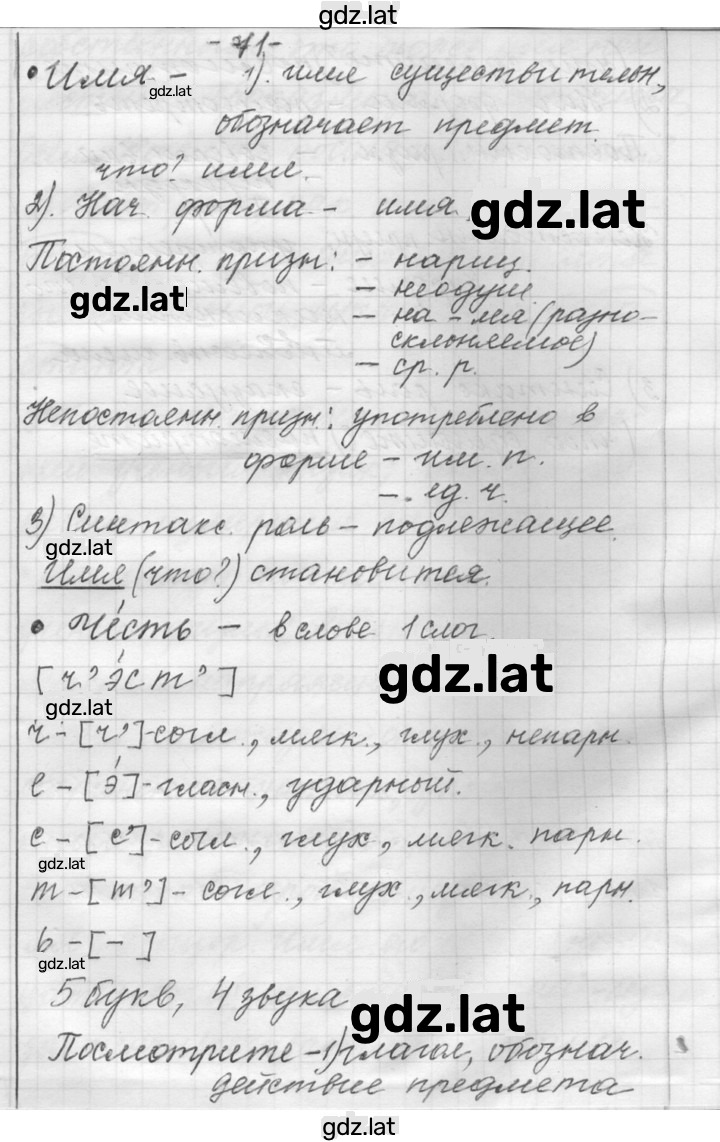 gdz.lat
- 71-
• Имя - 1). имя существительн,
gdz.lat
обозначает предмет.
что? имя.
2). Нач. форма - имя.
gdz.lat
Постоянн. призн: - нариц.
gdz.lat
- неодуш.
- на - мя (разно-
склоняемое)
- ср. р.
Непостоянн. призн: употреблено в
форме - им. п.
- ед. ч.
3) Синтакс. роль - подлежащее.
gdz.lat
Имя (что?) становится.
• Че́сть - в слове 1 слог.
[ч’э́ст’]
gdz.lat
gdz.lat
ч - [ч’]-согл., мягк., глух., непарн.
е - [э́]-гласн., ударный.
с - [с’]-согл., глух., мягк. парн.
gdz.lat
т - [т’]- согл., глух., мягк., парн.
ь - [- ]
gdz.lat
5 букв, 4 звука
gdz.lat
Посмотрите - 1) глагол, обознач.
действие предмета
gdz.lat